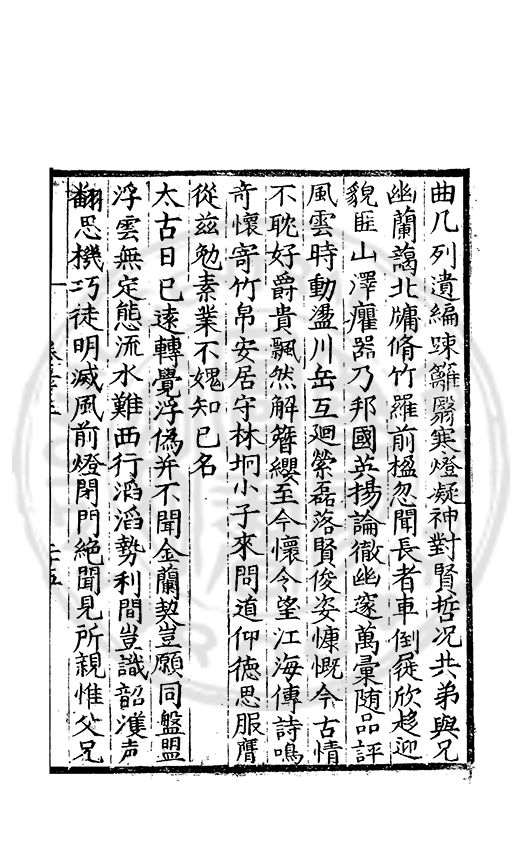 曲几列遺編踈籬翳寒燈凝神對賢哲况共弟與兄
幽蘭藹北牗脩竹羅前楹忽聞長者車倒屣欣趍迎
貌匪山澤癯器乃邦國英揚論徹幽邃萬彙随品評
風雲時動盪川岳互迴縈磊落賢俊姿慷慨今古情
不耽好爵貴飄然解簪纓至今懷令望江海傳詩鳴
竒懷寄竹帛安居守林坰小子來問道仰德思服膺
從兹勉素業不媿知已名
太古日已遠轉覺浮偽并不聞金蘭契豈願同盤盟
浮雲無定態流水難西行滔滔勢利間豈識韶濩声
翻思機巧徒明滅風前燈閉門絶聞見所親惟父兄